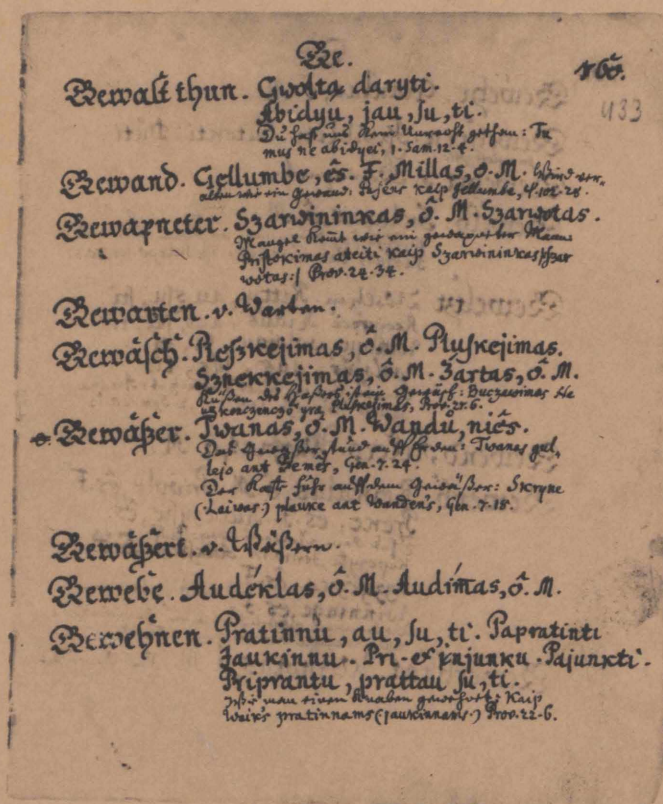 Ge.
160.
433
Gewalt thun. Gwoltą daryti.
Abidyu, jau, su, ti.
Du hast uns kein Unrecht gethan: Tu
mus ne abidyei, 1. Sam. 12. 4.
Gewand. Gellumbe, ês. F. Millas, ô. M. Wird ver-
alten wie ein Gewand: kaip Gellumbe, Ψ. 102. 28.
Gewapneter. Szarwininkas, ô. M. Szarwotas.
Mangel kömt wie ein gewapneter Mann
Pristokimas ateiti kaip Szarwininkas (: Szar
wotas:) Prov. 24. 34.
Gewarten. v. Warten.
Gewäsch. Pleszkejimas, ô. M. Pluskejimas.
Sznekkejimas, ô. M. Żartas, ô. M.
Küßen des Haßers ist ein Gewäsch: Buczawimas Ne
yra Pluskejimas, Prov. 27. 6.
Gewäßer. Twanas, ô. M. Wandů, niês.
Das Gewäßer stund auff Erden: Twanas gul-
lejo ant Źemês, Gen. 7. 24.
Der Kaste fuhr auff dem Gewäßer: Skryne
(Laiwas) plauke ant Wandens, Gen. 7. 18.
Gewäßert. v. Wäßern.
Gewebe. Audéklas, ô. M. Audimas, ô. M.
Gewehnen. Pratinnu, au, su, ti. Papratinti
Jaukinnu. Pri- & Injunku. Pajunkti.
Priprantu, prattau su, ti.
Wie man einen Knaben gewehnet: Kaip
Waiks pratinnams (jaukinnams.) Prov. 22. 6.